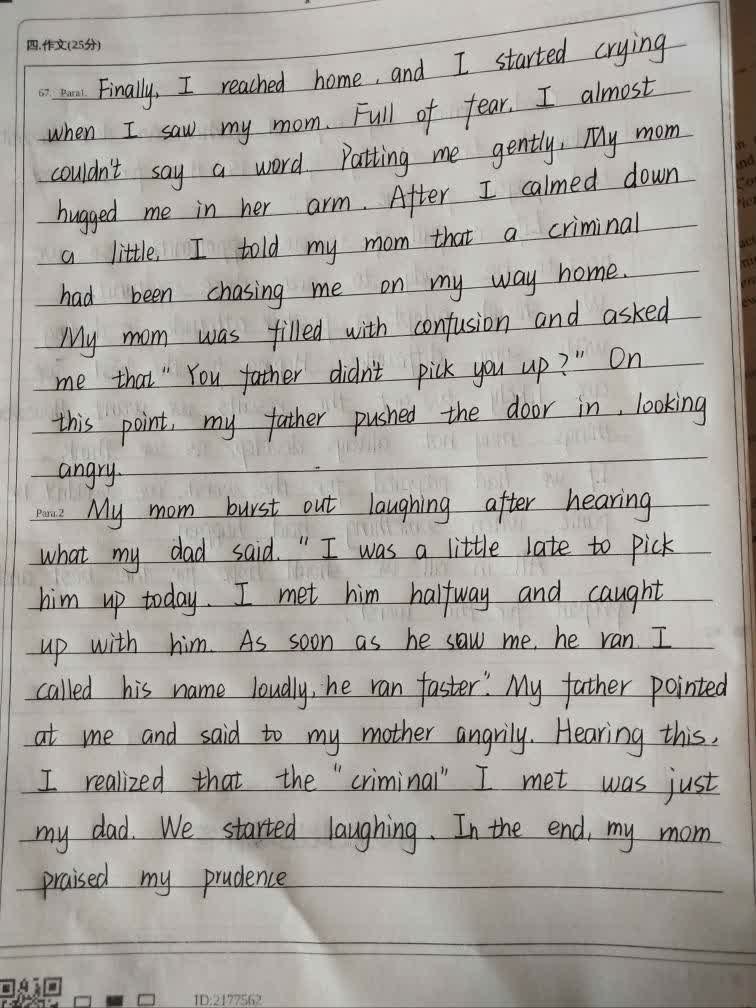 四.作文(25分)
67. Para1. Finally, I reached home, and I started crying
when I saw my mom. Full of fear, I almost
couldn't say a word. Patting me gently, My mom
hugged me in her arm. After I calmed down
a little, I told my mom that a criminal
had been chasing me on my way home.
My mom was filled with confusion and asked
me that "You father didn't pick you up?" On
this point, my father pushed the door in, looking
angry.
Para.2 My mom burst out laughing after hearing
what my dad said. "I was a little late to pick
him up today. I met him halfway and caught
up with him. As soon as he saw me, he ran. I
called his name loudly, he ran faster". My father pointed
at me and said to my mother angrily. Hearing this,
I realized that the "criminal" I met was just
my dad. We started laughing. In the end, my mom
praised my prudence
ID:2177562